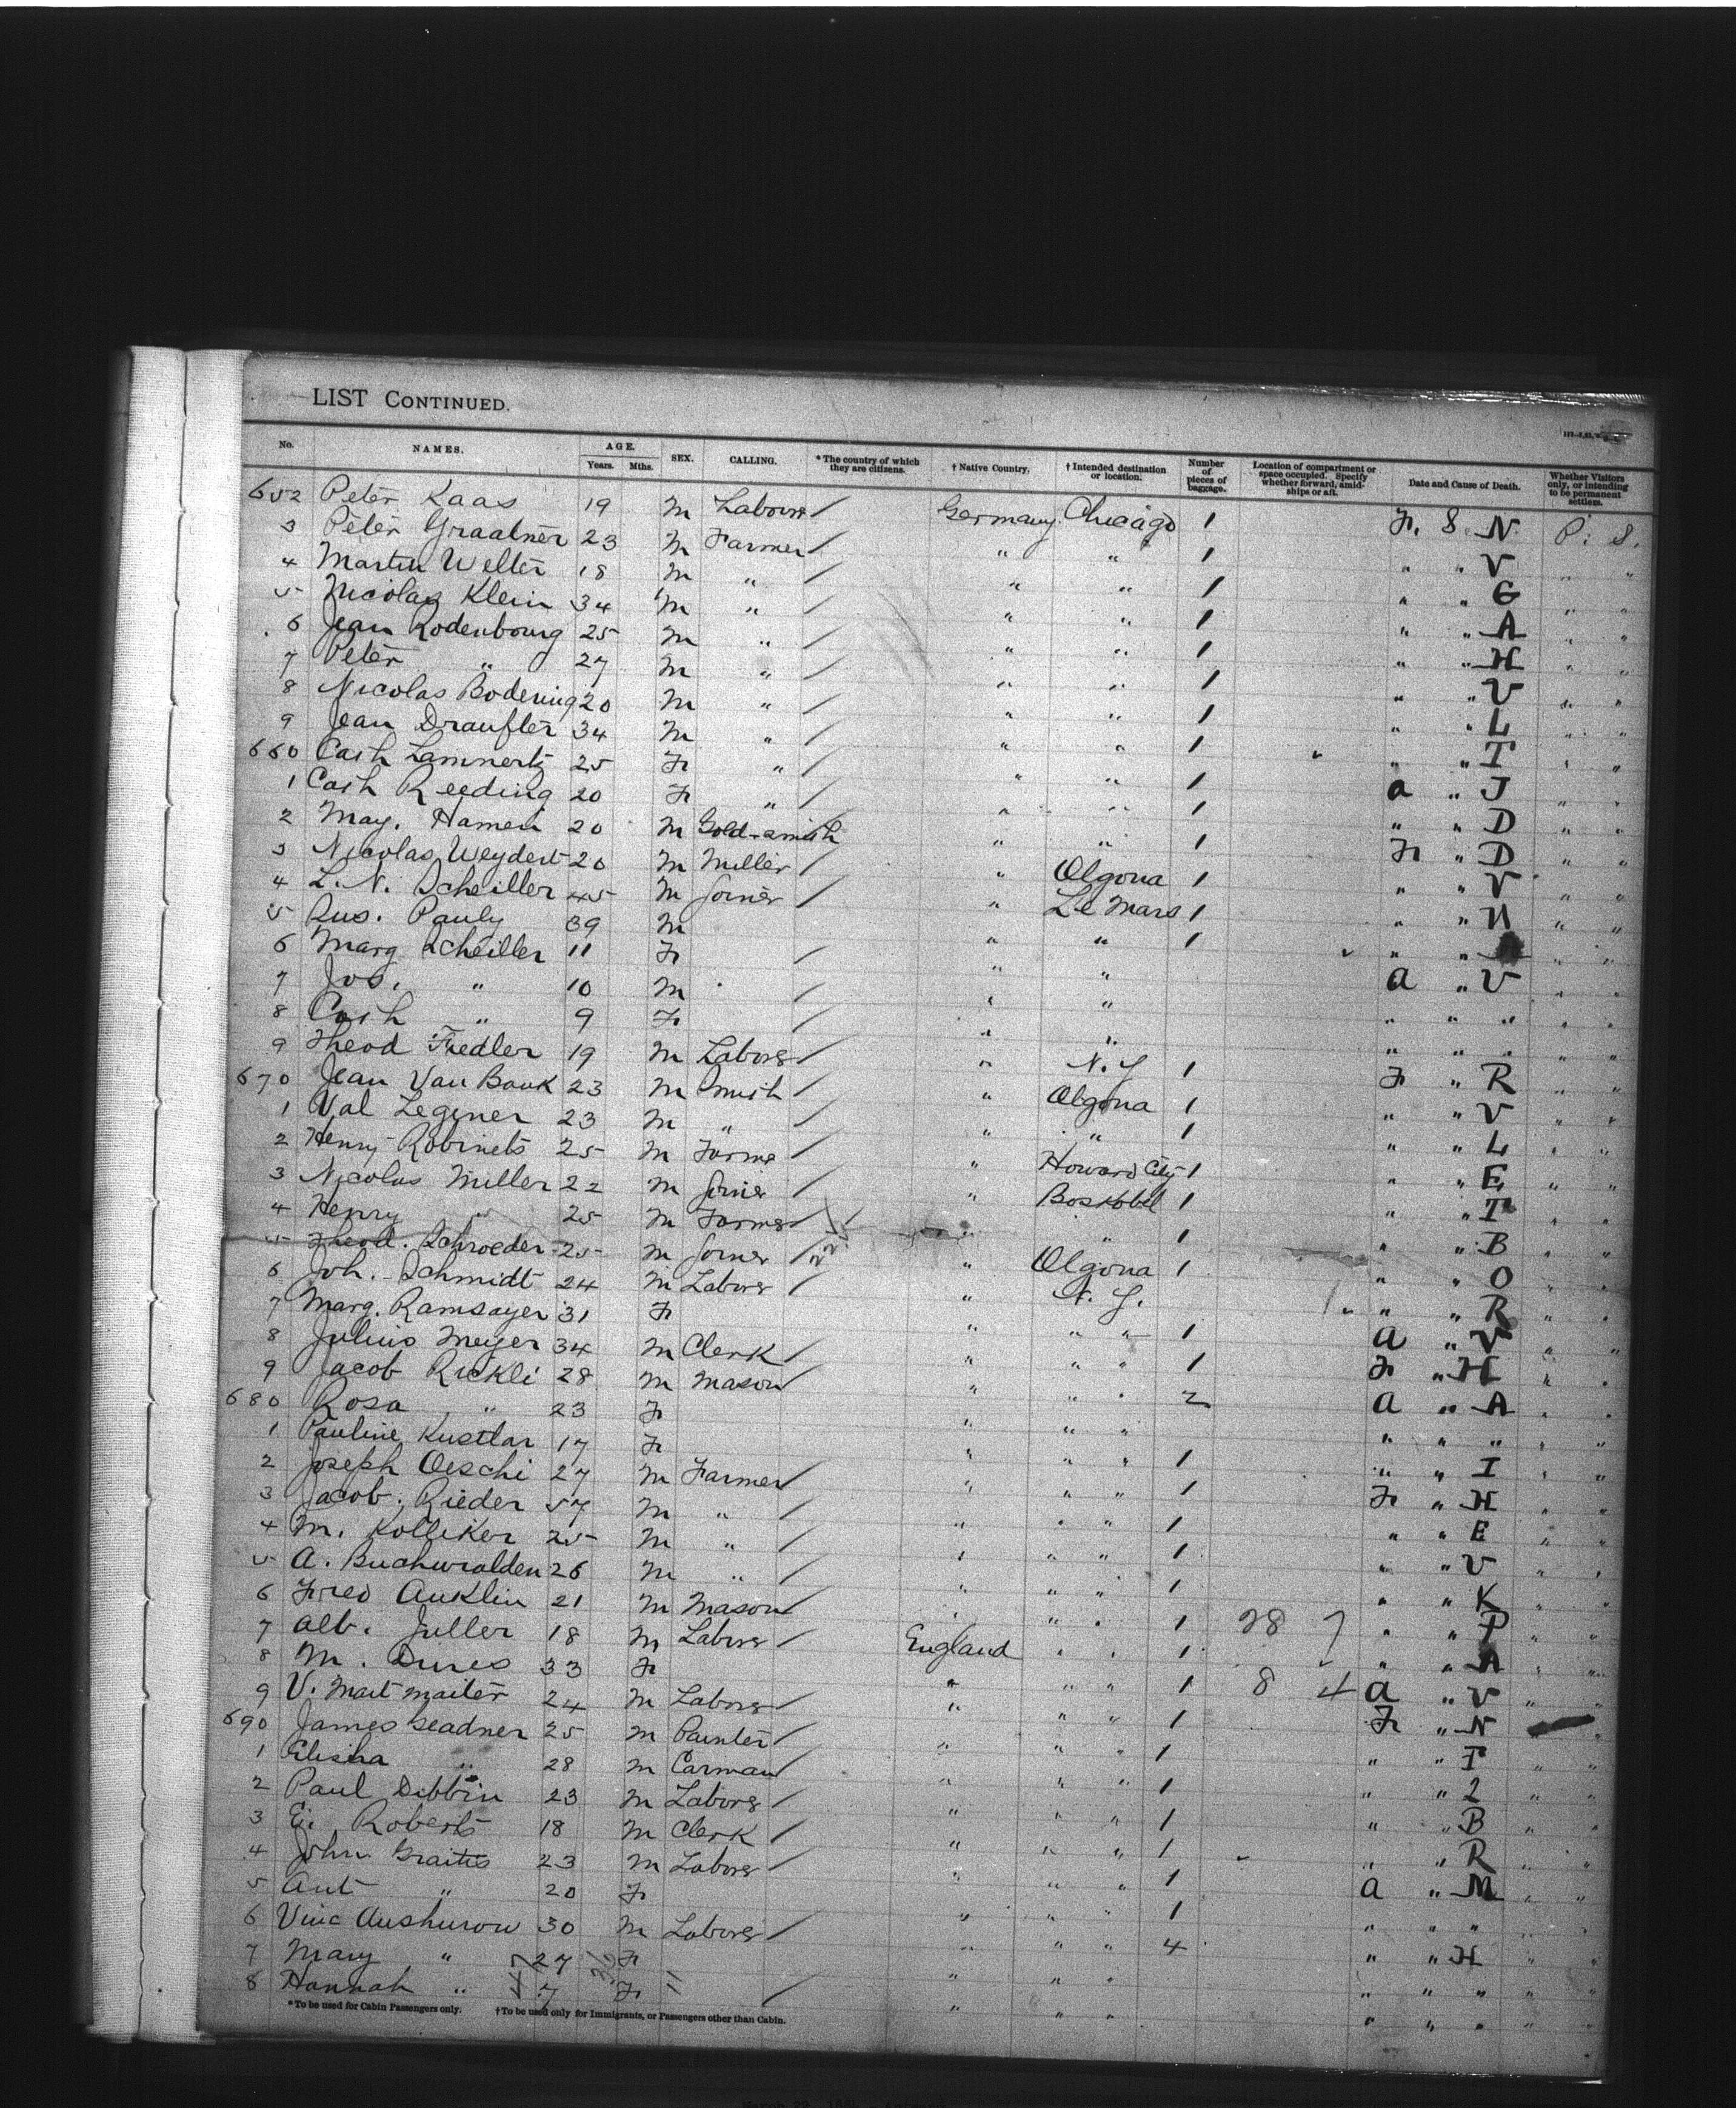 LIST CONTINUED.
No. NAMES. AGE. Years. Mths. SEX. CALLING. * The country of which they are citizens. † Native Country. † Intended destination or location. Number of pieces of baggage. Location of compartment or space occupied. Specify whether forward, amidships or aft. Date and Cause of Death. Whether Visitors only, or intending to be permanent settlers.
652 Peter Kaas 19 M Laborer / Germany Chicago 1 Fr. S. N P. S.
3 Peter Graatner 23 M Farmer / " " 1 " " V " "
4 Martin Welter 18 M " / " " 1 " " G " "
5 Nicolas Klein 34 M " / " " 1 " " A " "
6 Jean Rodenbourg 25 M " / " " 1 " " H " "
7 Peter " 27 M " / " " 1 " " V " "
8 Nicolas Bodering 20 M " / " " 1 " " L " "
9 Jean Draufler 34 M " / " " 1 " " T " "
660 Cath Lamnertz 25 Fr " / " " 1 a " J " "
1 Cath Reeding 20 Fr " / " " 1 " " D " "
2 May. Hamen 20 M Gold-smith " " 1 Fr " D " "
3 Nicolas Weydert 20 M Miller / " Olgona 1 " " V " "
4 L. N. Scheiller 45 M Joiner / " Le Mars 1 " " N " "
5 Aus. Pauly 39 M " " 1 " " " "
6 Marg Scheiller 11 Fr / " " a " V " "
7 Jos. " 10 M / " " " " " " "
8 Cath " 9 Fr / " " " " " " "
9 Theod Fiedler 19 M Laborer / " N. Y 1 Fr " R " "
670 Jean Van Bouk 23 M Smith / " Olgona 1 " " V " "
1 Val Legener 23 M " / " " 1 " " L " "
2 Henry Robinets 25 M Farmer / " Howard City 1 " " E " "
3 Nicolas Miller 22 M Joiner / " Boskobel 1 " " T " "
4 Henry " 25 M Farmer / " " 1 " " B " "
5 Theod. Schroeder 25 M Joiner / " Olgona 1 " " O " "
6 Joh. Schmidt 24 M Laborer / " N. Y. " " R " "
7 Marg. Ramsayer 31 Fr " " " 1 a " V " "
8 Julius Meyer 34 M Clerk / " " " 1 Fr " H " "
9 Jacob Rickli 28 M Mason / " " " 2 a " A " "
680 Rosa " 23 Fr " " " " " " " "
1 Pauline Kustlar 17 Fr " " " 1 " " I " "
2 Joseph Oeschi 27 M Farmer / " " " 1 Fr " H " "
3 Jacob. Rieder 57 M " / " " " 1 " " E " "
4 M. Kolliker 25 M " / " " " 1 " " V " "
5 A. Buchwalden 26 M " / " " " 1 " " K " "
6 Fred Auklin 21 M Mason " " " 1 28 7 " " P " "
7 Alb. Juller 18 M Laborer / England " " 1 " " A " "
8 M. Dures 33 Fr " " " 1 8 4 a " V " "
9 V. Mattmaiter 24 M Laborer / " " " 1 Fr " N "
690 James Geadner 25 M Painter " " " 1 " " T " "
1 Elisha " 28 M Carman " " " 1 " " L " "
2 Paul Dibbin 23 M Laborer / " " " 1 " " B " "
3 E. Roberts 18 M Clerk / " " " 1 " " R " "
4 John Graites 23 M Laborer / " " " 1 a " M " "
5 Ant " 20 Fr " " " 1 " " " " "
6 Vinc Aushurow 30 M Laborer / " " " 4 " " H " "
7 Mary " 27 Fr " " " " " " " "
8 Hannah " 7 Fr / " " " " " " " "
* To be used for Cabin Passengers only. † To be used only for Immigrants, or Passengers other than Cabin.